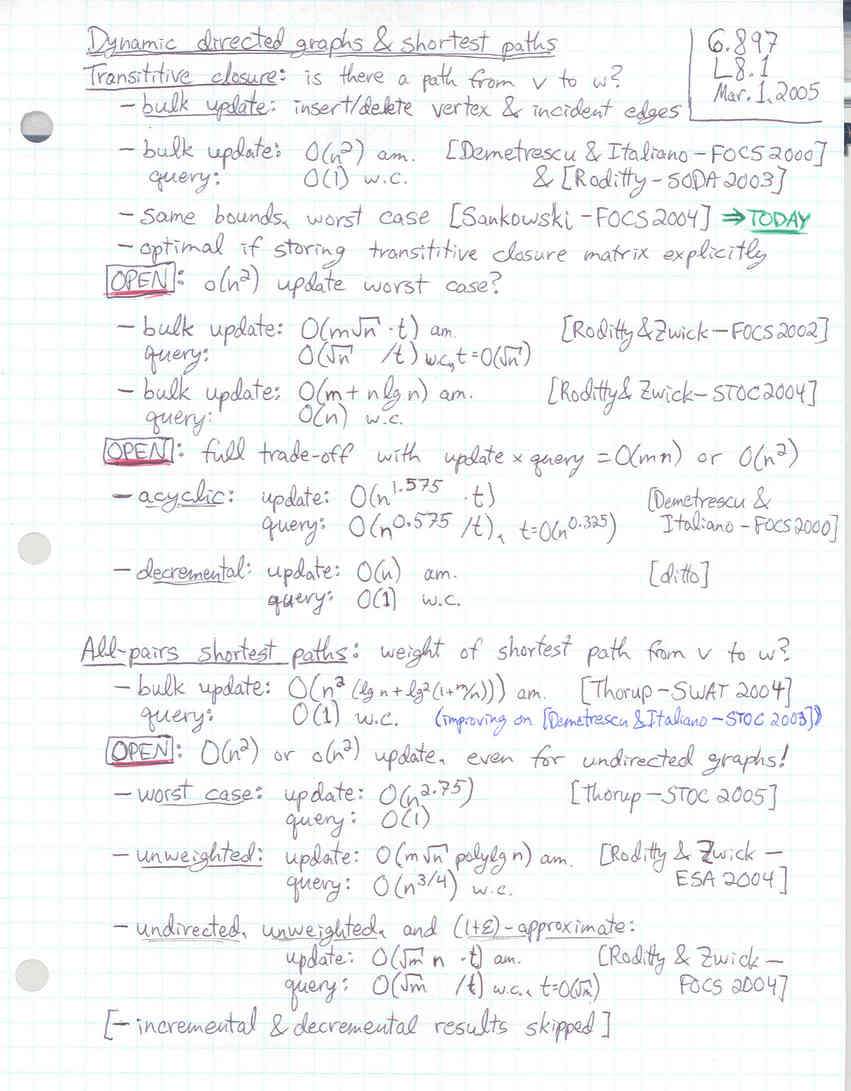 Dynamic directed graphs & shortest paths
6.897
L8.1
Mar. 1, 2005
Transititive closure: is there a path from v to w?
- bulk update: insert/delete vertex & incident edges
- bulk update: O(n²) am. [Demetrescu & Italiano - FOCS 2000]
query: O(1) w.c. & [Roditty - SODA 2003]
- same bounds, worst case [Sankowski - FOCS 2004] ⇒ TODAY
- optimal if storing transititive closure matrix explicitly
OPEN: o(n²) update worst case?
- bulk update: O(m√n · t) am. [Roditty & Zwick - FOCS 2002]
query: O(√n / t) w.c., t = O(√n)
- bulk update: O(m + n lg n) am. [Roditty & Zwick - STOC 2004]
query: O(n) w.c.
OPEN: full trade-off with update × query = O(mn) or O(n²)
- acyclic: update: O(n^1.575 · t) [Demetrescu &
query: O(n^0.575 / t), t = O(n^0.325) Italiano - FOCS 2000]
- decremental: update: O(n) am. [ditto]
query: O(1) w.c.
All-pairs shortest paths: weight of shortest path from v to w?
- bulk update: O(n² (lg n + lg² (1+m/n))) am. [Thorup - SWAT 2004]
query: O(1) w.c. (improving on [Demetrescu & Italiano - STOC 2003])
OPEN: O(n²) or o(n²) update, even for undirected graphs!
- worst case: update: O(n^2.75) [Thorup - STOC 2005]
query: O(1)
- unweighted: update: O(m√n polylg n) am. [Roditty & Zwick -
query: O(n^3/4) w.c. ESA 2004]
- undirected, unweighted, and (1+ε)-approximate:
update: O(√m n · t) am. [Roditty & Zwick -
query: O(√m / t) w.c., t = O(√m) FOCS 2004]
[- incremental & decremental results skipped]